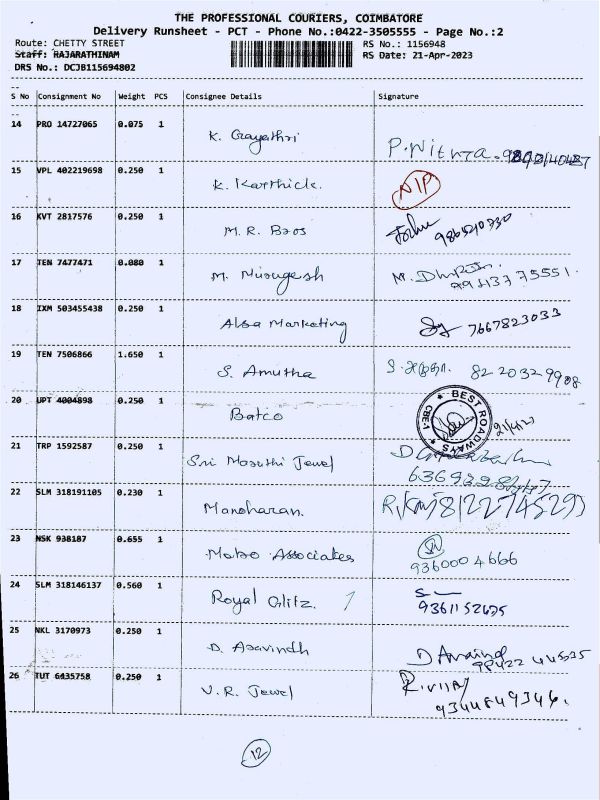 THE PROFESSIONAL COURIERS, COIMBATORE
Delivery Runsheet - PCT - Phone No.:0422-3505555 - Page No.:2
Route: CHETTY STREET RS No.: 1156948
Staff: RAJARATHINAM RS Date: 21-Apr-2023
DRS No.: DCJB115694802
S No Consignment No Weight PCS Consignee Details Signature
14 PRO 14727065 0.075 1
K. Gayathri
P. Nithya.
15 VPL 402219698 0.250 1
K. Karthick. NIP
16 KVT 2817576 0.250 1
M. R. Bros
17 TEN 7477471 0.080 1
M. Murugesh M.
18 IXM 503455438 0.250 1
Alsa Marketing 7667823033
19 TEN 7506866 1.650 1
S. Amutha 82 20 32 9908
20 UPT 4004898 0.250 1
Batco BEST ROADWAYS CBE-1 21/4/23
21 TRP 1592587 0.250 1
Sri Maruthi Jewel
22 SLM 318191105 0.230 1
Manoharan. 8122745293
23 NSK 938187 0.655 1
Mateo Associates 9360004666
24 SLM 318146137 0.560 1
Royal Glitz. 1 9361152635
25 NKL 3170973 0.250 1
D. Aravindh D Aravind
98422 44535
26 TUT 6435758 0.250 1
V. R. Jewel
9344849346.
12